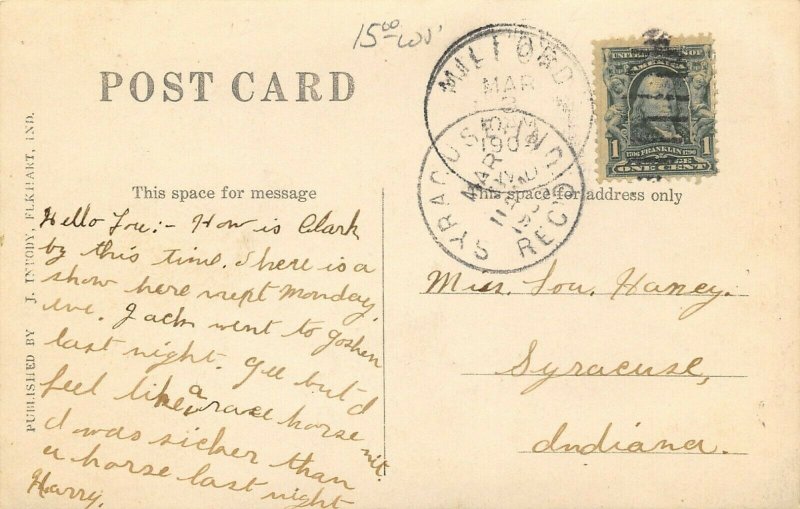 15.00
POST CARD
MILFORD
MAR
190
SYRACUSE, IND.
MAR
REC'D
UNITED STATES OF AMERICA
1706 FRANKLIN 1790
1 1
ONE CENT
PUBLISHED BY J. INBODY, ELKHART, IND.
This space for message
This space for address only
Hello Lou:- How is Clark
by this time. There is a
show here next Monday
eve. Jack went to Goshen
last night. Gee but I'd
feel like a race horse nit.
I was sicker than
a horse last night
Harry.
Miss. Lou. Haney.
Syracuse,
Indiana.